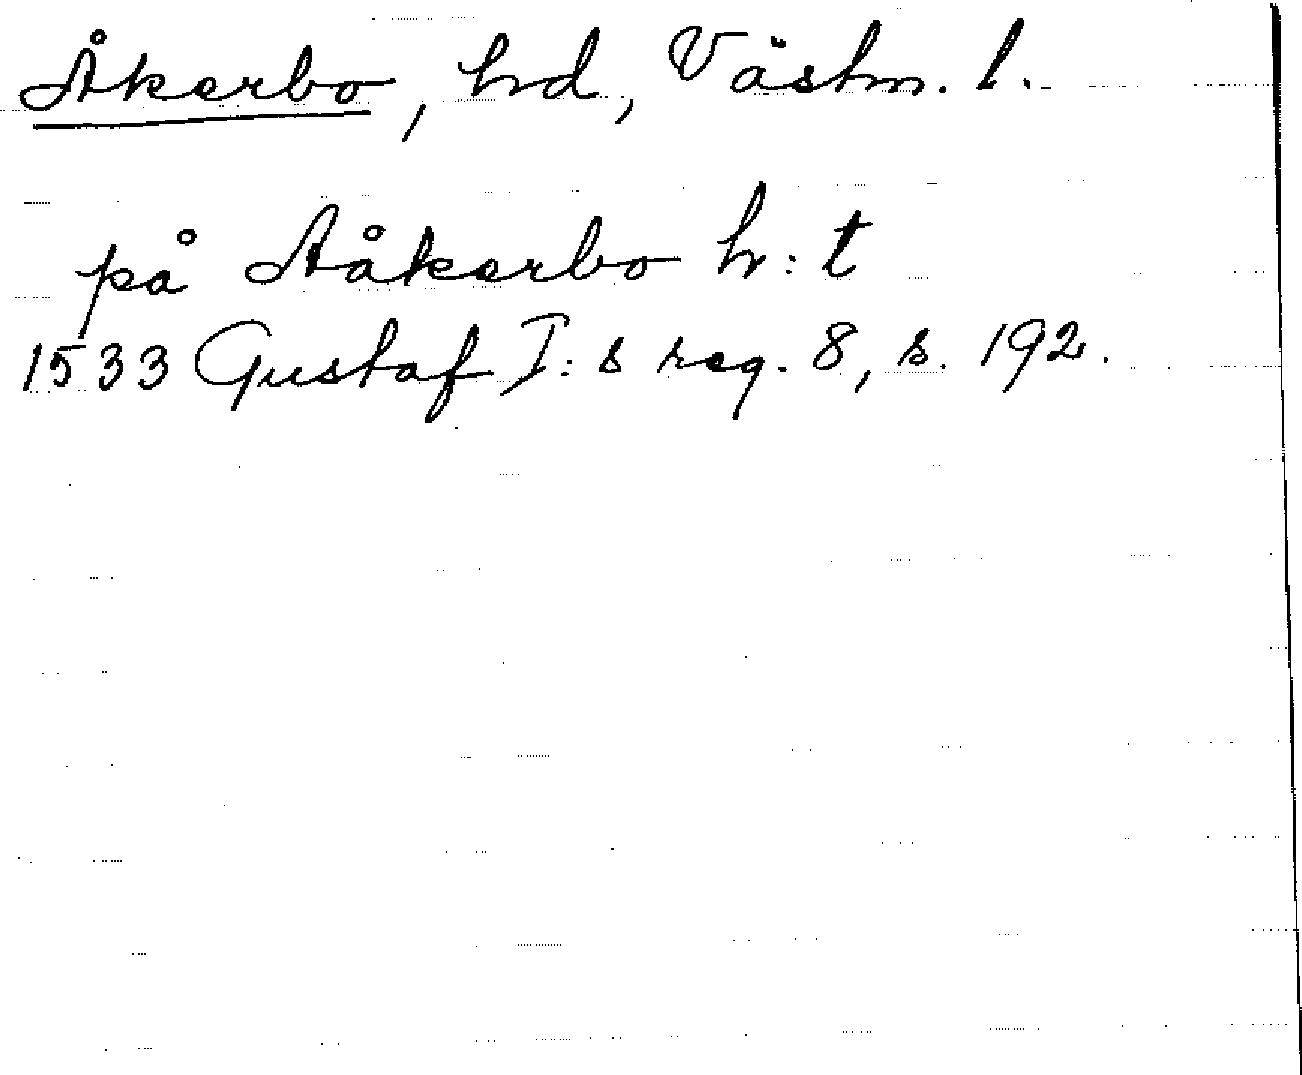 Åkerbo, hd, Västm. l.
på Aåkerbo h:t
1533 Gustaf I:s reg. 8, s. 192.